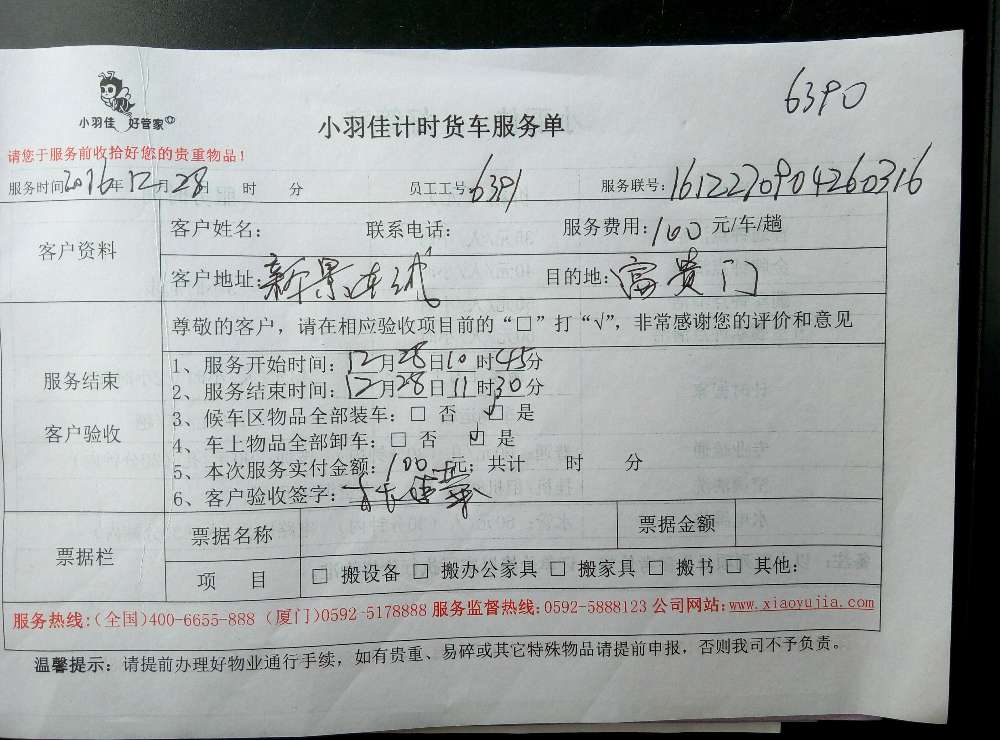 6390
小羽佳 好管家
小羽佳计时货车服务单
请您于服务前收拾好您的贵重物品！
服务时间2016年12月28日 时 分 员工工号：6391 服务联号：1612270904260316
客户资料
客户姓名： 联系电话： 服务费用：100 元/车/趟
客户地址：新景连城 目的地：富贵门
服务结束
客户验收
尊敬的客户，请在相应验收项目前的“□”打“√”，非常感谢您的评价和意见
1、服务开始时间：12月28日10时45分
2、服务结束时间：12月28日11时30分
3、候车区物品全部装车：□ 否 ☑ 是
4、车上物品全部卸车：□ 否 ☑ 是
5、本次服务实付金额：100元；共计 时 分
6、客户验收签字：
票据栏
票据名称 票据金额
项 目 □ 搬设备 □ 搬办公家具 □ 搬家具 □ 搬书 □ 其他：
服务热线:(全国)400-6655-888 (厦门)0592-5178888 服务监督热线:0592-5888123 公司网站:www.xiaoyujia.com
温馨提示：请提前办理好物业通行手续，如有贵重、易碎或其它特殊物品请提前申报，否则我司不予负责。